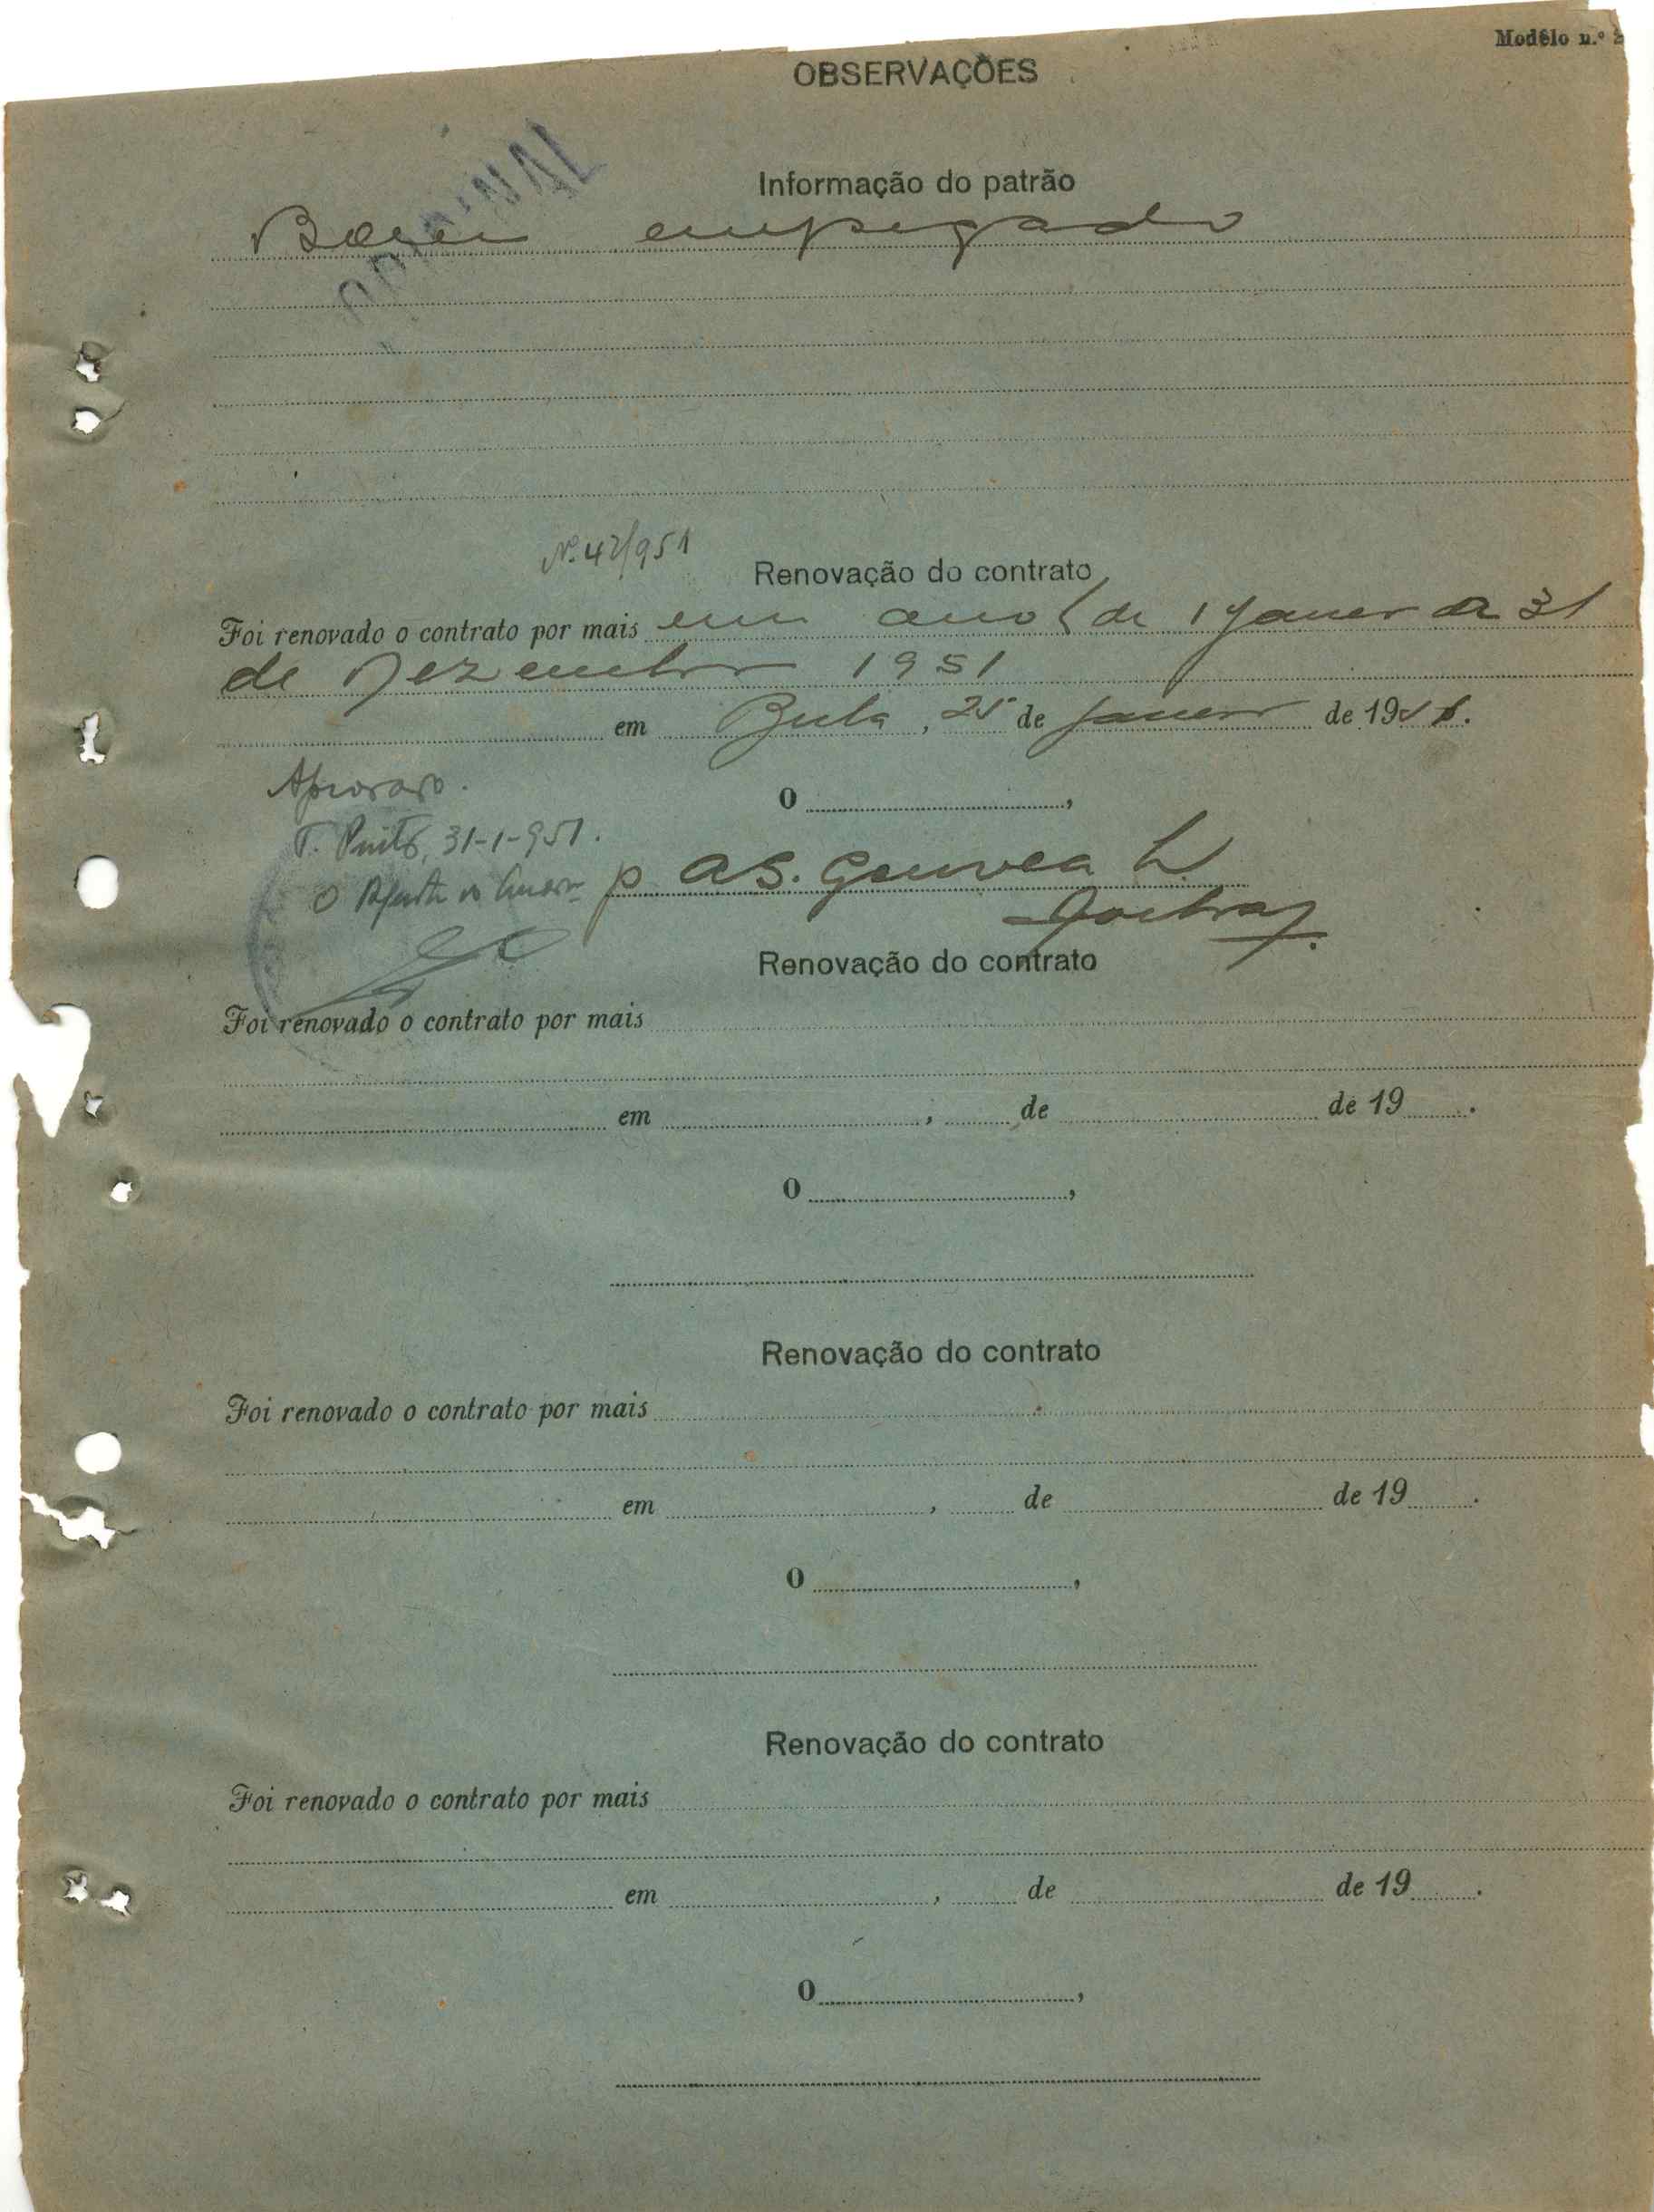 Modêlo n.º
OBSERVAÇÕES
ORIGINAL
Informação do patrão
Bom empregado
N.º 42/951
Renovação do contrato
Foi renovado o contrato por mais um ano (de 1 Janeiro a 31
de Dezembro 1951
em Bula, 25 de Janeiro de 19
Aprovado.
O ,
T. Pinto, 31-1-951.
p A S. Gouvea L
Renovação do contrato
Foi renovado o contrato por mais
em , de de 19 .
O ,
Renovação do contrato
Foi renovado o contrato por mais
em , de de 19 .
O ,
Renovação do contrato
Foi renovado o contrato por mais
em , de de 19 .
O ,